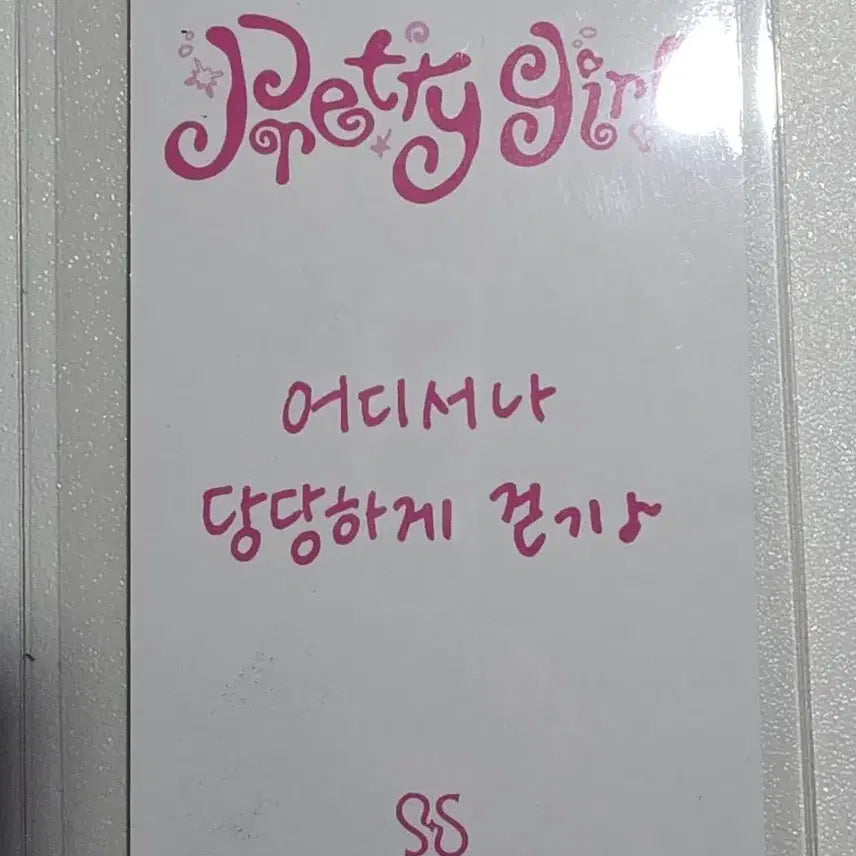 Pretty girl
어디서나
당당하게 걷기♪
S2S